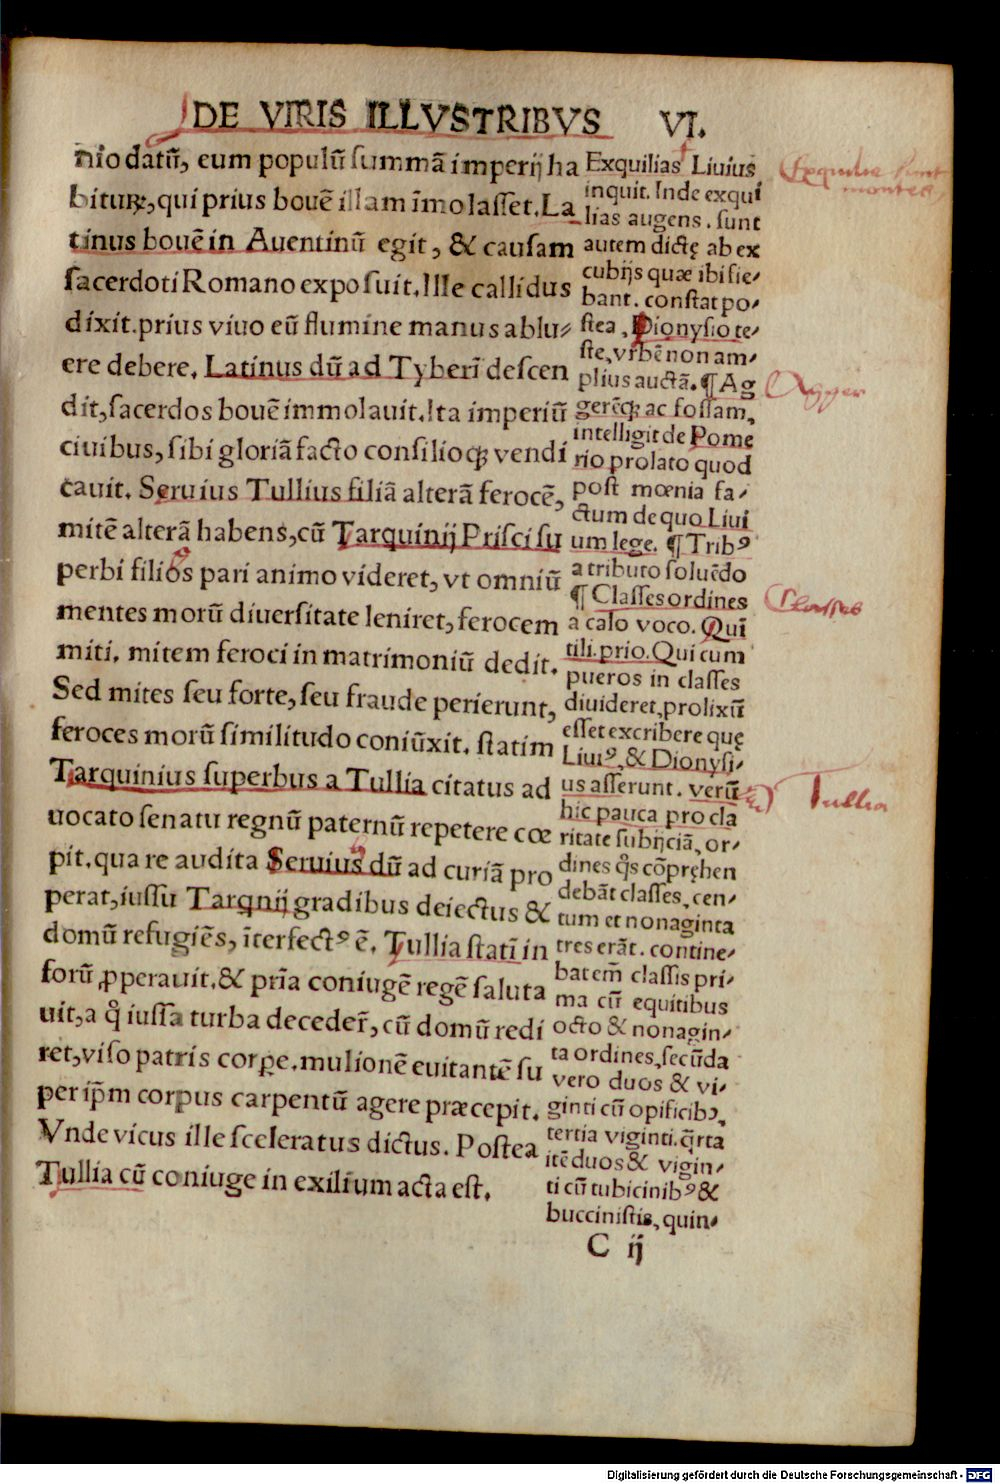 DE VIRIS ILLVSTRIBVS VI.
nio datū, eum populū summā imperij ha
bituꝝ, qui prius bouē illam īmolasset. La
tinus bouē in Auentinū egit, & causam
sacerdoti Romano exposuit. Ille callidus
dixit. prius viuo eū flumine manus ablu⸗
ere debere. Latinus dū ad Tyberī descen
dit, sacerdos bouē immolauit. Ita imperiū
ciuibus, sibi gloriā facto consilioqꝫ vendi
cauit. Seruius Tullius filiā alterā ferocē,
mitē alterā habens, cū Tarquinij Prisci su
perbi filios pari animo videret, vt omniū
mentes morū diuersitate leniret, ferocem
miti. mitem feroci in matrimoniū dedit.
Sed mites seu forte, seu fraude perierunt,
feroces morū similitudo coniūxit. statim
Tarquinius superbus a Tullia citatus ad
uocato senatu regnū paternū repetere cœ
pit. qua re audita Seruius dū ad curiā pro
perat, iussu Tarqnij gradibus deiectus &
domū refugiēs, īterfectꝰ ē. Tullia statī in
forū ꝓperauit, & prīa coniugē regē saluta
uit, a q̊ iussa turba decedeř, cū domū redi
ret, viso patris corꝑe. mulionē euitantē su
per ip̄m corpus carpentū agere præcepit.
Vnde vicus ille sceleratus dictus. Postea
Tullia cū coniuge in exilium acta est.
Exquilias Liuius
inquit. Inde exqui
lias augens. sunt
autem dictę ab ex
cubijs quæ ibi fie⸗
bant. constat po⸗
stea, Dionysio te⸗
ste, vrbē non am⸗
plius auctā. ¶ Ag
gerēqꝫ ac fossam,
intelligit de Pome
rio prolato quod
post mœnia fa⸗
ctum de quo Liui
um lege. ¶ Tribꝰ
a tributo soluēdo
¶ Classes ordines
a calo voco. Qui
tili. prio. Qui cum
pueros in classes
diuideret, prolixū
esset excribere quę
Liuiꝰ, & Dionysi⸗
us asserunt. verū
hic pauca pro cla
ritate subijciā, or⸗
dines q̊s cōpręhen
debāt classes, cen⸗
tum et nonaginta
tres erāt. contine⸗
bat em̄ classis pri⸗
ma cū equitibus
octo & nonagin⸗
ta ordines, secūda
vero duos & vi⸗
ginti cū opificibꝰ,
tertia viginti. q̄rta
itē duos & vigin⸗
ti cū tubicinibꝰ &
buccinistis, quin⸗
C ij
Exquilie sunt
montes
Agger
Classes
Tullia
Digitalisierung gefördert durch die Deutsche Forschungsgemeinschaft - DFG